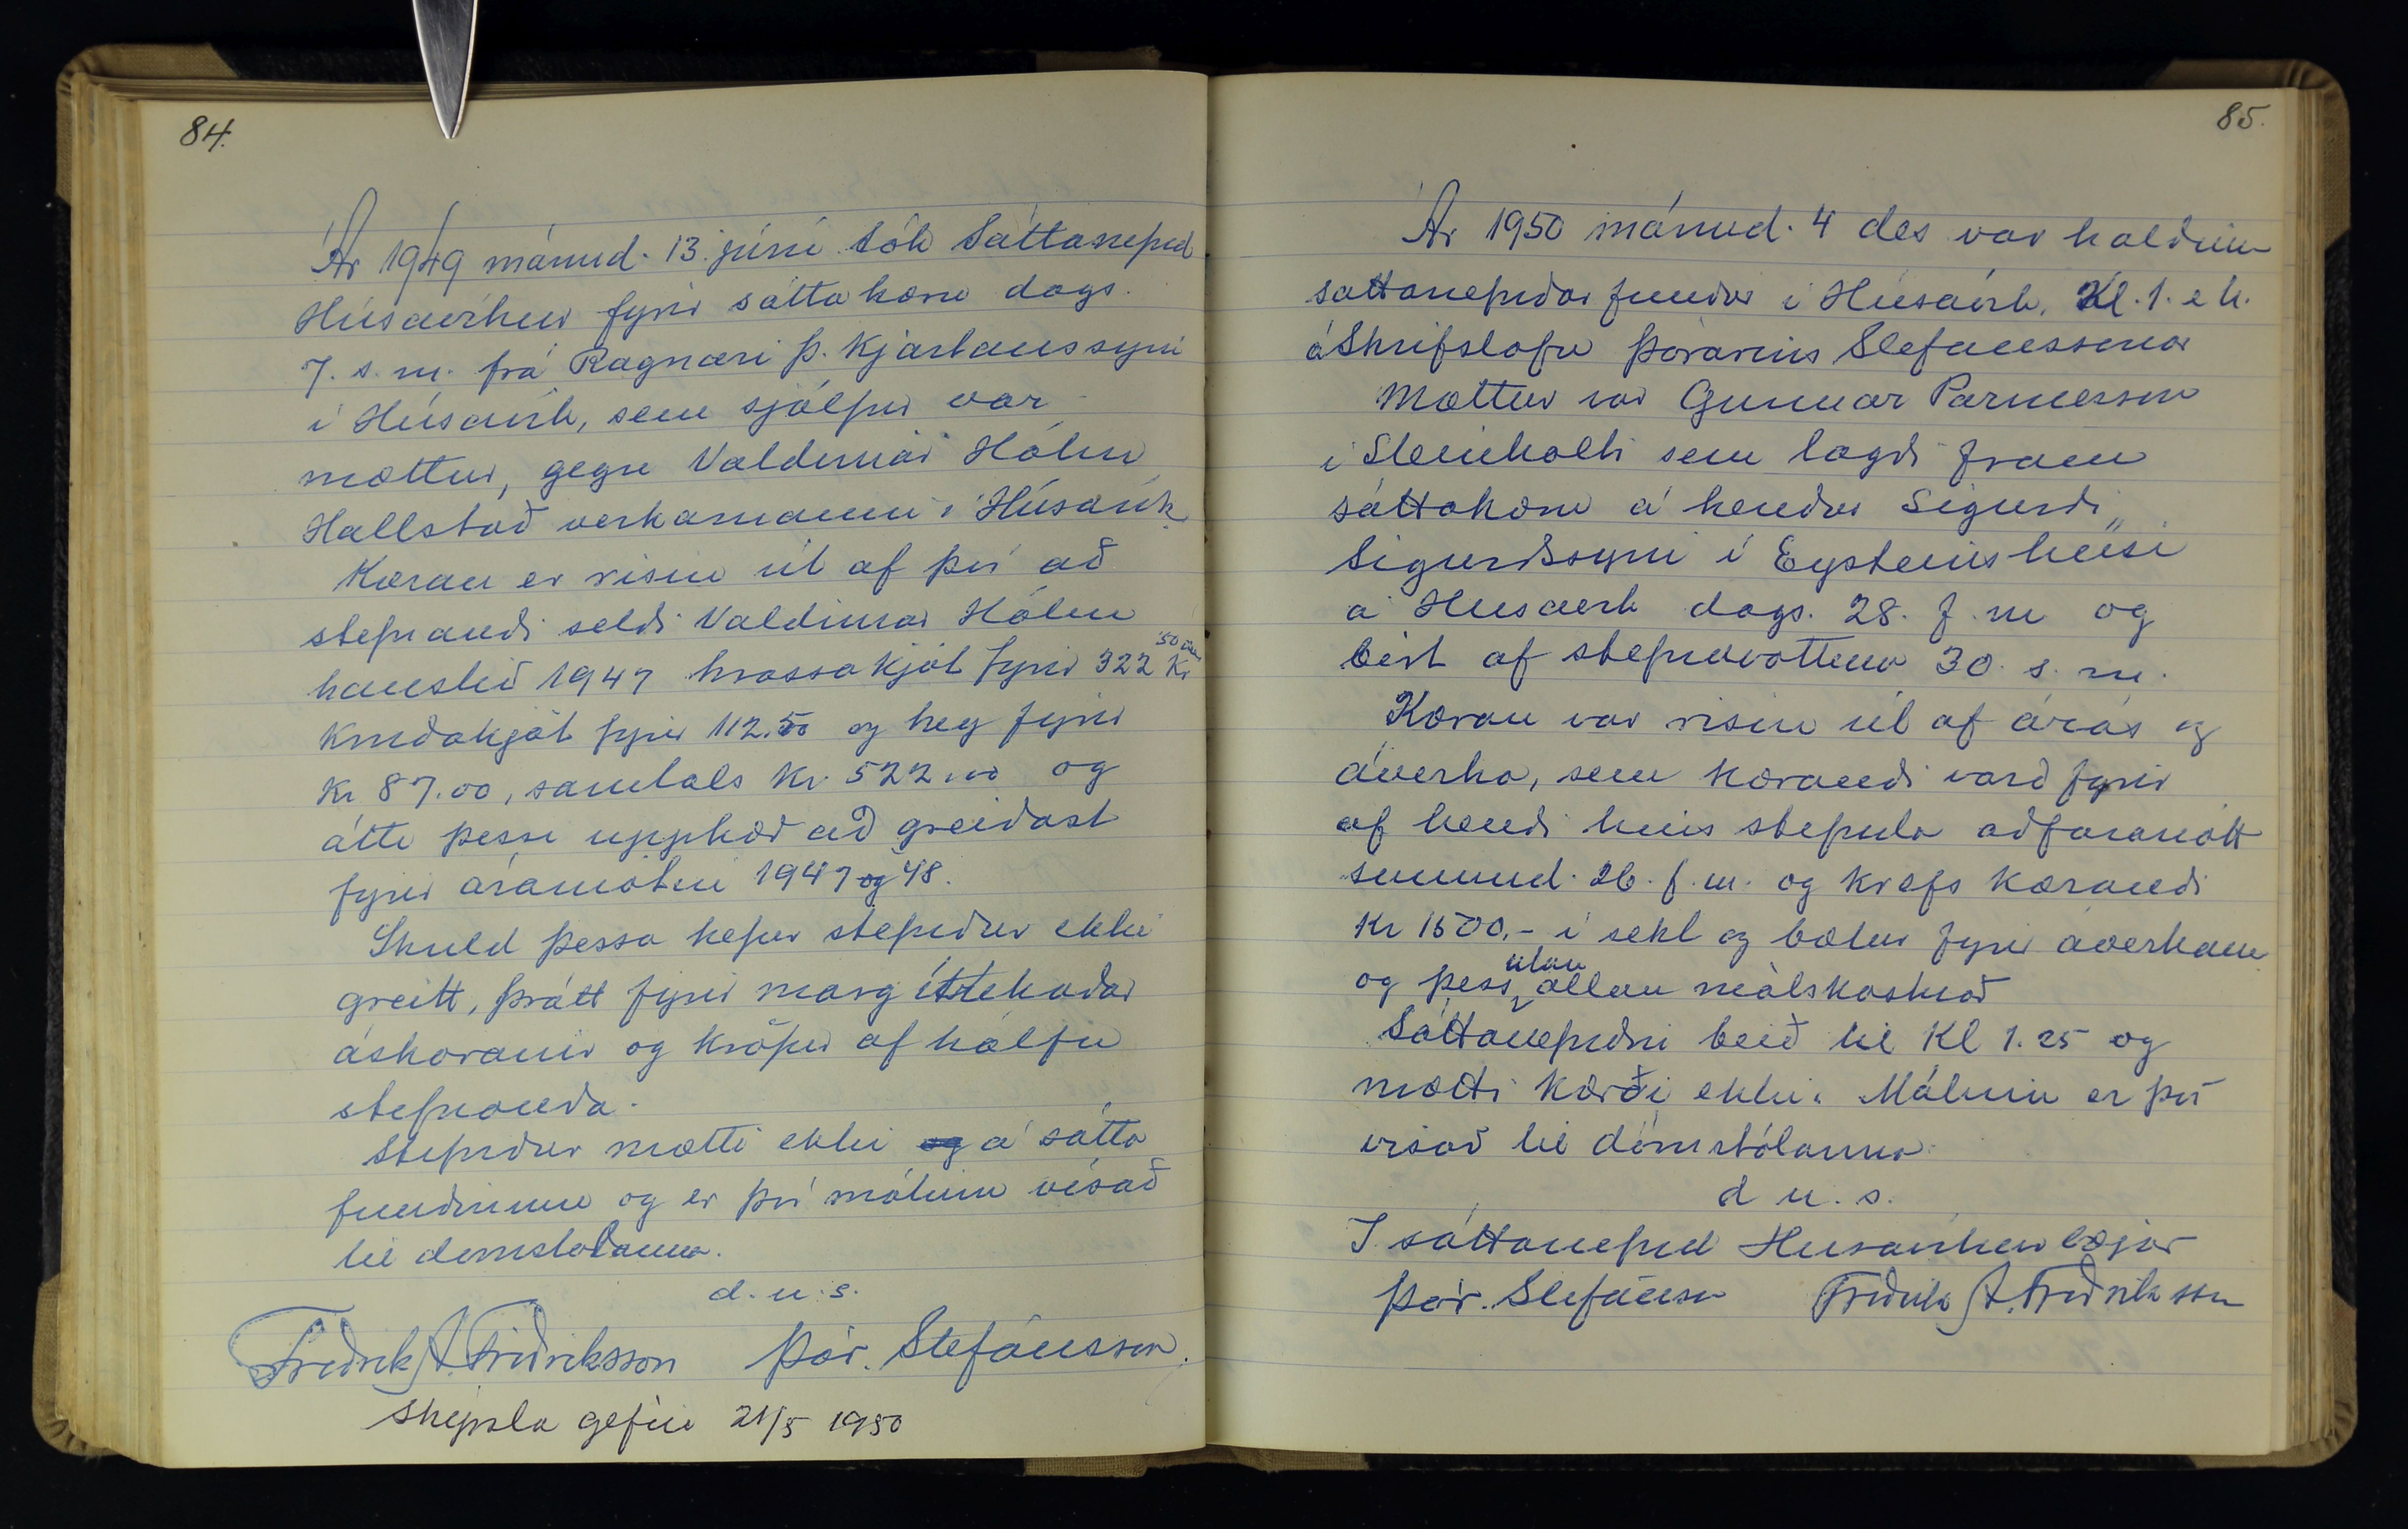 84.
Ár 1949 mánud. 13. júní tók Sáttanefnd
Húsavíkur fyrir sáttakæru dags.
7. s. m. frá Ragnari Þ. Kjartanssyni
í Húsavík, sem sjálfur var
mættur, gegn Valdimar Hólm
Hallstað verkamanni í Húsavík.
Kæran er risin út af því að
stefnandi seldi Valdimar Hólm
haustið 1947 hrossakjöt fyrir 322 50 aur Kr
Kindakjöt fyrir 112.50 og hey fyrir
Kr 87.00, samtals Kr. 522.00 og
átti þessi upphæð að greiðast
fyrir áramótin 1947 og 48.
Skuld þessa hefur stefndur ekki
greitt, þrátt fyrir marg ítrekaðar
áskoranir og kröfur af hálfu
stefnanda.
Stefndur mætti ekki og á sátta
fundinum og er því málinu vísað
til dómstólanna.
d.u.s.
Friðrik A. Friðriksson Þór. Stefánsson.
Skýrsla gefin 21/5 1950
85.
Ár 1950 mánud. 4 des var haldinn
sáttanefndar fundur í Húsavík. Kl. 1. e h.
á Skrifstofu Þórarins Stefánssonar
Mættur var Gunnar Parmersson
í Steinholti sem lagði fram
sáttakæru á hendur Sigurði
Sigurðssyni í Eysteinshúsi
á Húsavík dags. 28. f. m og
birt af stefnuvottum 30. s. m.
Kæran var risin út af árás og
áverka, sem kærandi varð fyrir
af hendi hins stefnda aðfaranótt
sunnud. 26. f. m. og krefs kærandi
Kr 1500.- í sekt og bætur fyrir áverkann
og þess utan allan málskostnað
Sáttanefndin beið til Kl 1.25 og
mætti kærði ekki. Málinu er því
vísað til dómstólanna.
d u. s.
Í sáttanefnd Húsavíkur bæjar
Þór. Stefánsson Friðrik A. Friðriksson